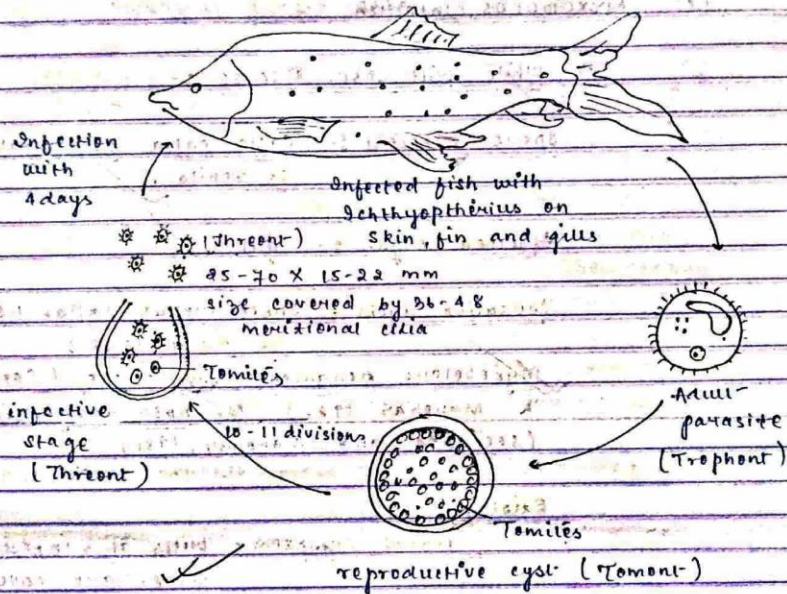 Infection
with
4 days
Infected fish with
Ichthyoptherius on
skin, fin, and gills
(Threont)
25-70 X 15-22 mm
size covered by 36-48
meridional cilia
Tomites
infective
stage
(Threont)
10-11 divisions
Adult
parasite
(Trophont)
Tomites
reproductive cyst (Tomont)